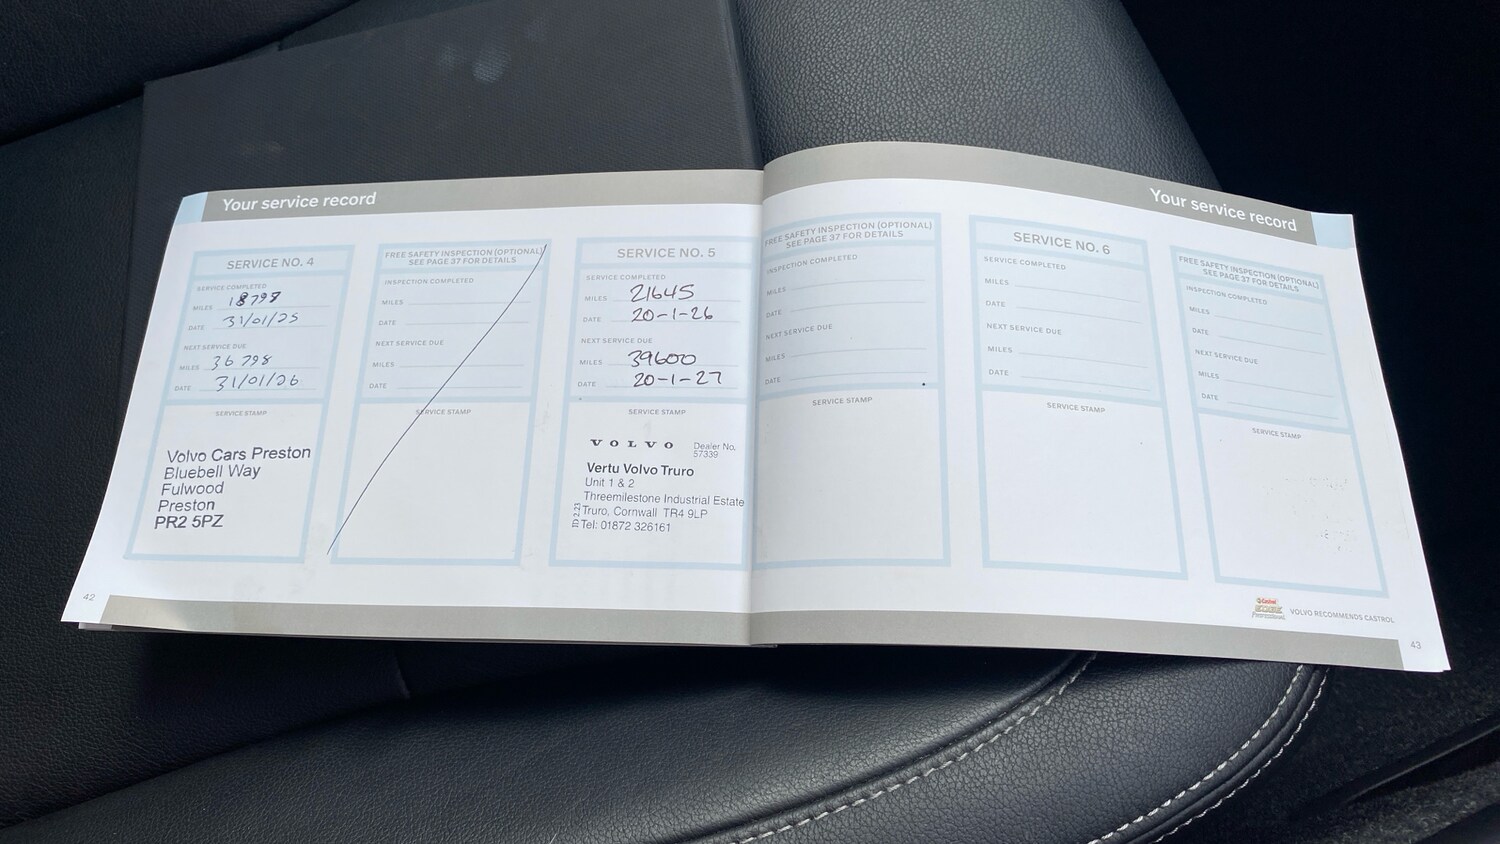 Your service record
SERVICE NO. 4
SERVICE COMPLETED
MILES 18798
DATE 31/01/25
NEXT SERVICE DUE
MILES 36798
DATE 31/01/26
SERVICE STAMP
Volvo Cars Preston
Bluebell Way
Fulwood
Preston
PR2 5PZ
42
FREE SAFETY INSPECTION (OPTIONAL)
SEE PAGE 37 FOR DETAILS
INSPECTION COMPLETED
MILES
DATE
NEXT SERVICE DUE
MILES
DATE
SERVICE STAMP
SERVICE NO. 5
SERVICE COMPLETED
MILES 21645
DATE 20-1-26
NEXT SERVICE DUE
MILES 39600
DATE 20-1-27
SERVICE STAMP
VOLVO Dealer No.
57339
Vertu Volvo Truro
Unit 1 & 2
Threemilestone Industrial Estate
Truro, Cornwall TR4 9LP
Tel: 01872 326161
Your service record
FREE SAFETY INSPECTION (OPTIONAL)
SEE PAGE 37 FOR DETAILS
INSPECTION COMPLETED
MILES
DATE
NEXT SERVICE DUE
MILES
DATE
SERVICE STAMP
SERVICE NO. 6
SERVICE COMPLETED
MILES
DATE
NEXT SERVICE DUE
MILES
DATE
SERVICE STAMP
FREE SAFETY INSPECTION (OPTIONAL)
SEE PAGE 37 FOR DETAILS
INSPECTION COMPLETED
MILES
DATE
NEXT SERVICE DUE
MILES
DATE
SERVICE STAMP
Castrol
VOLVO RECOMMENDS CASTROL
43